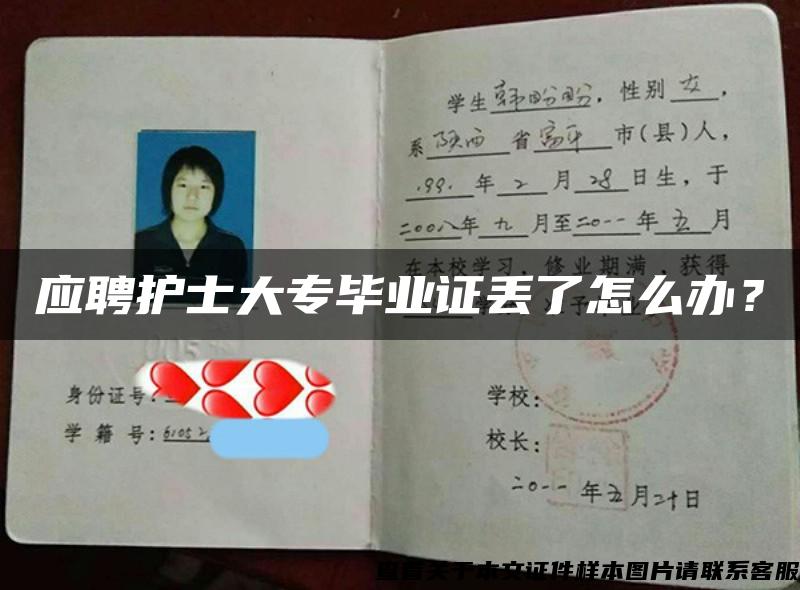 学生韩盼盼，性别女，
系陕西省富平市(县)人，
1991年2月28日生，于
二00八年九月至二0一一年五月
在本校学习，修业期满，获得
应聘护士大专毕业证丢了怎么办？
身份证号：
学籍号：6105
学校：
校长：
二0一一年五月二十日
查看关于本文证件样本图片请联系客服